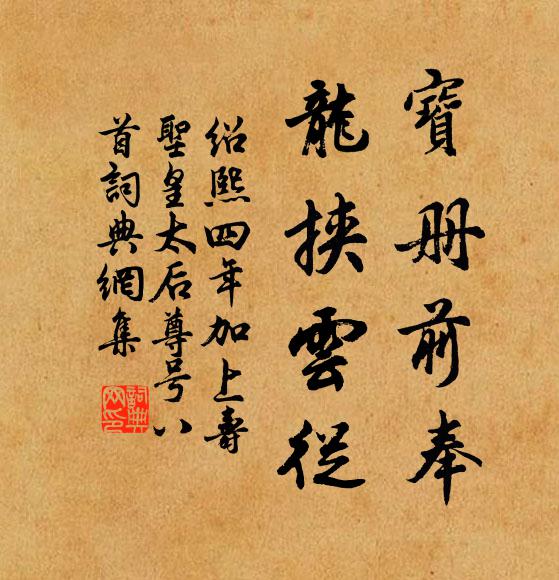 寶册前奉
龍挾雲從
紹熙四年加上壽
聖皇太后尊号八
首詞典網集
詞典网印